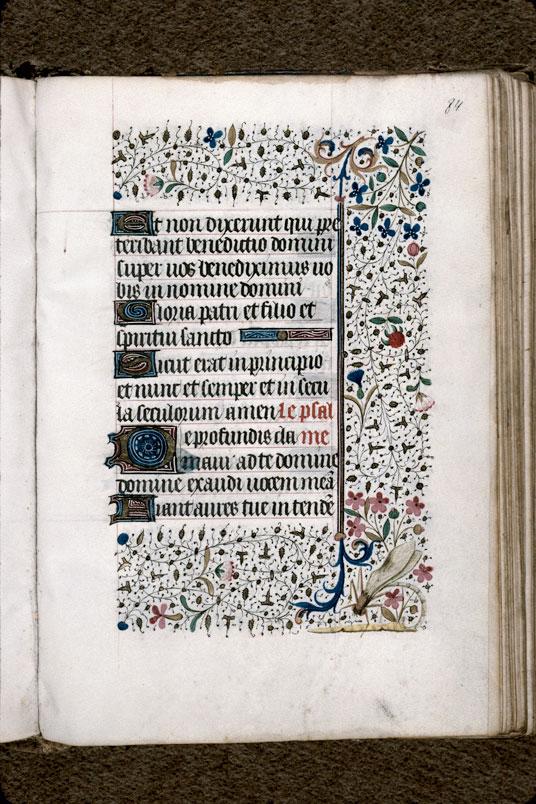 84
Et non dixerunt qui pre
teribant benedictio domini
super uos benediximus uo
bis in nomine domini
Gloria patri et filio et
spiritui sancto
Sicut erat in principio
et nunc et semper et in secu
la seculorum amen Le psal
De profundis cla me
maui ad te domine
domine exaudi uocem meā
Fiant aures tue in tendē